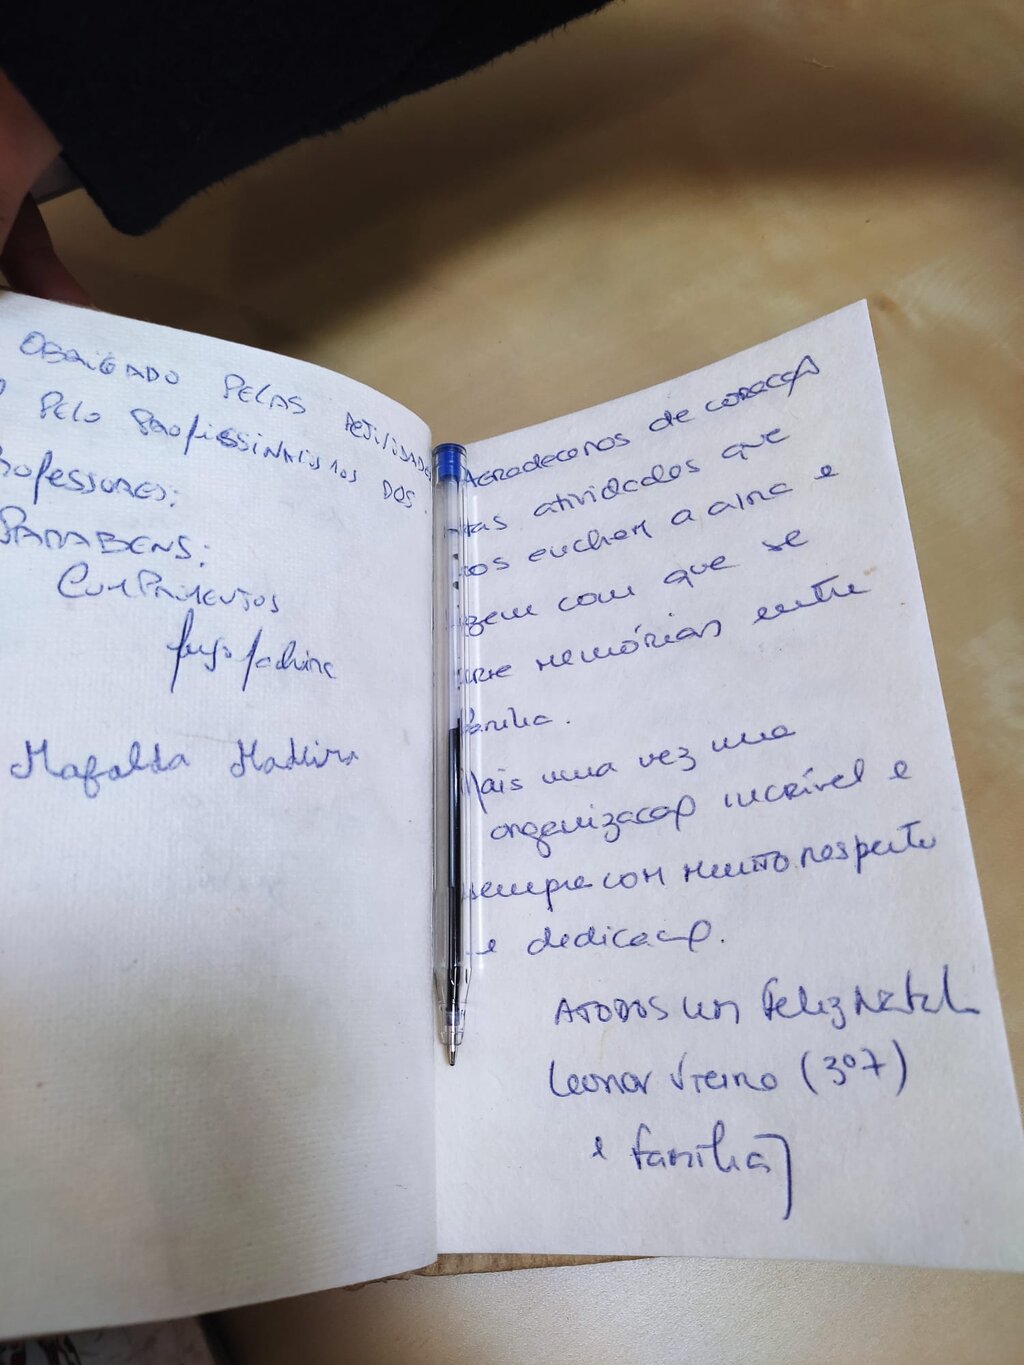 OBRIGADO PELAS ACTILIDADES
PELO PROFISSINALISMOS DOS
PROFESSORES;
PARABENS;
CUMPRIMENTOS
Mafalda Madeira
Agradecemos de coração
atividades que
nos enchem a alma e
fazem com que se
memórias entre
família.
Mais uma vez uma
organização incrível e
sempre com muito respeito
e dedicação.
A TODOS um Feliz Natal
Leonor (3º7)
e família